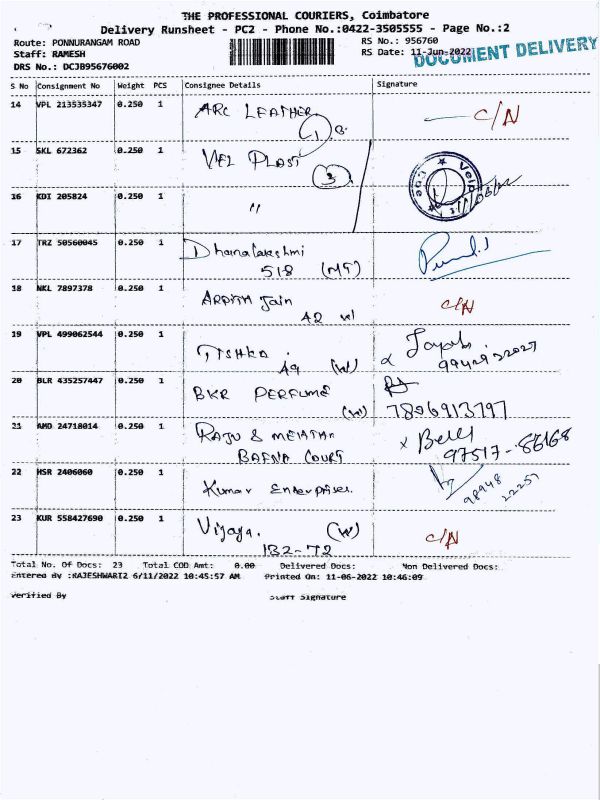 THE PROFESSIONAL COURIERS, Coimbatore
Delivery Runsheet - PC2 - Phone No.:0422-3505555 - Page No.:2
Route: PONNURANGAM ROAD RS No.: 956760
Staff: RAMESH RS Date: 11-Jun-2022
DOCUMENT DELIVERY
DRS No.: DCJB95676002
S No Consignment No Weight PCS Consignee Details Signature
14 VPL 213535347 0.250 1 ARC LEATHER C/N
15 SKL 672362 0.250 1 VEL PLAST
3
16 KDI 205824 0.250 1 "
17 TRZ 50560045 0.250 1 Dhanalakshmi
518 (MT)
18 NKL 7897378 0.250 1 ARPITH Jain C/N
A2
19 VPL 499062544 0.250 1
A9 (W)
20 BLR 435257447 0.250 1 BKR PERFUME
(W) 7806913797
21 AMD 24718014 0.250 1 RAJU & MEHTHA
BAFNA COURT 97517-86168
22 HSR 2406060 0.250 1 Kumar Enterprises. 98948
22257
23 KUR 558427690 0.250 1 Vijaya. (W) C/N
132-72
Total No. Of Docs: 23 Total COD Amt: 0.00 Delivered Docs: Non Delivered Docs:
Entered By :RAJESHWARI2 6/11/2022 10:45:57 AM Printed On: 11-06-2022 10:46:09
Verified By Staff Signature